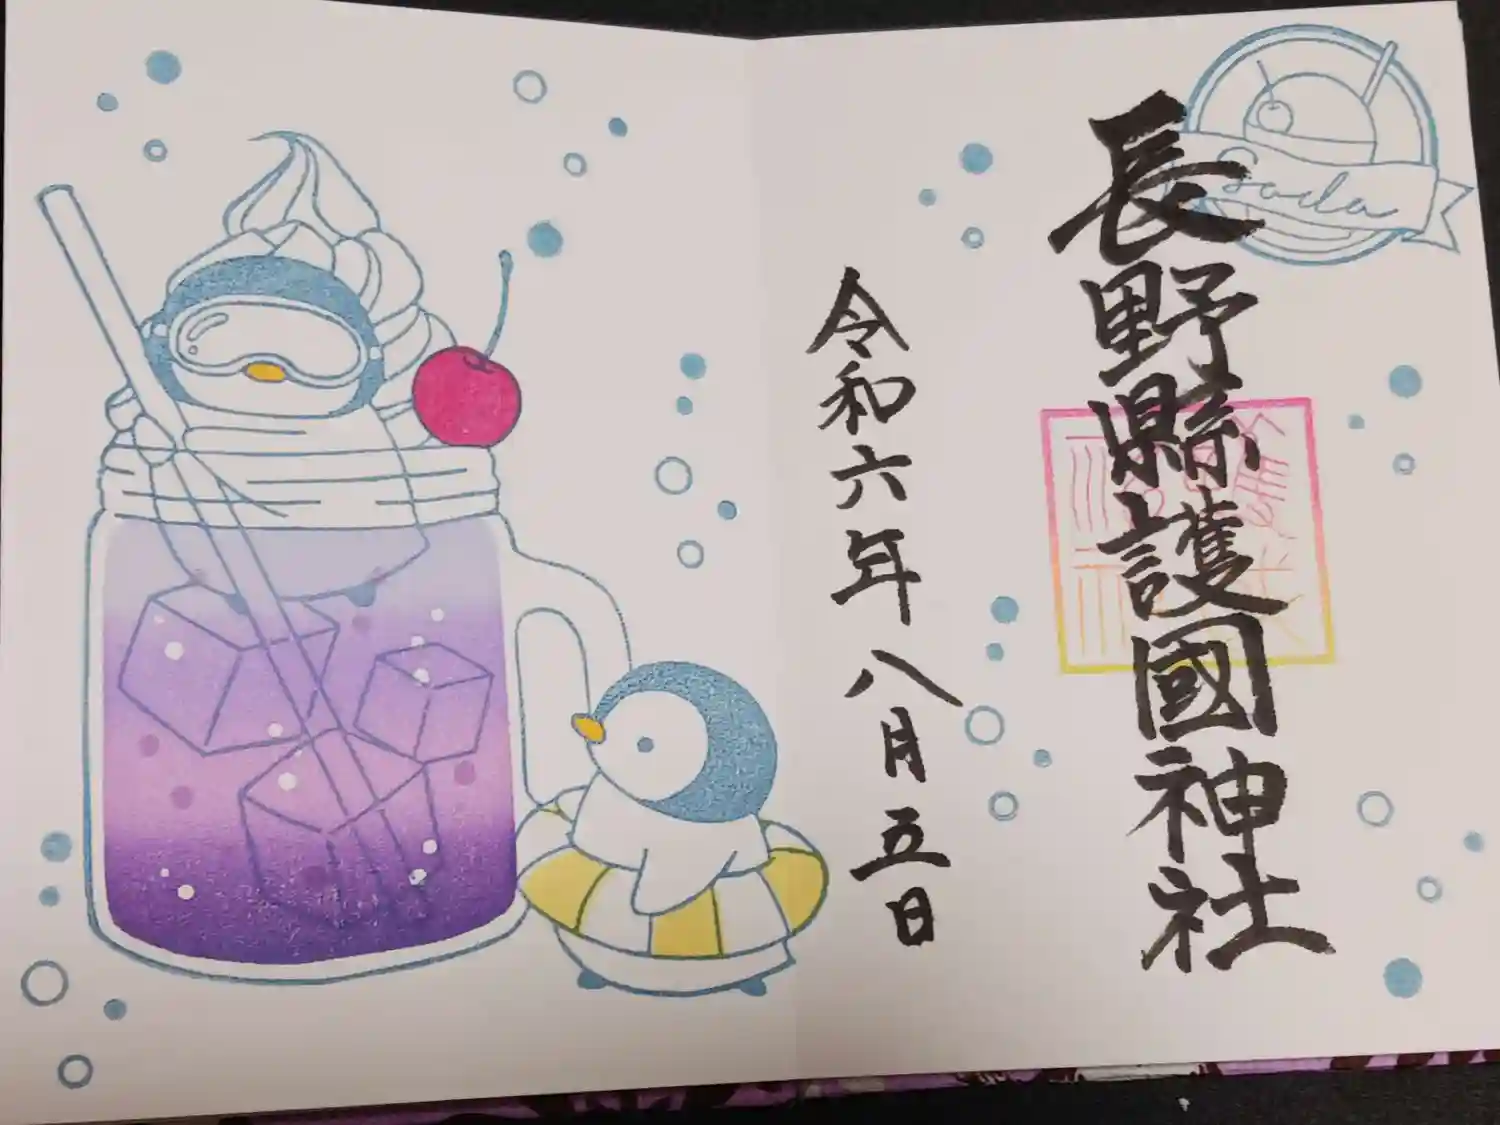 長野縣護國神社
令和六年八月五日
Soda